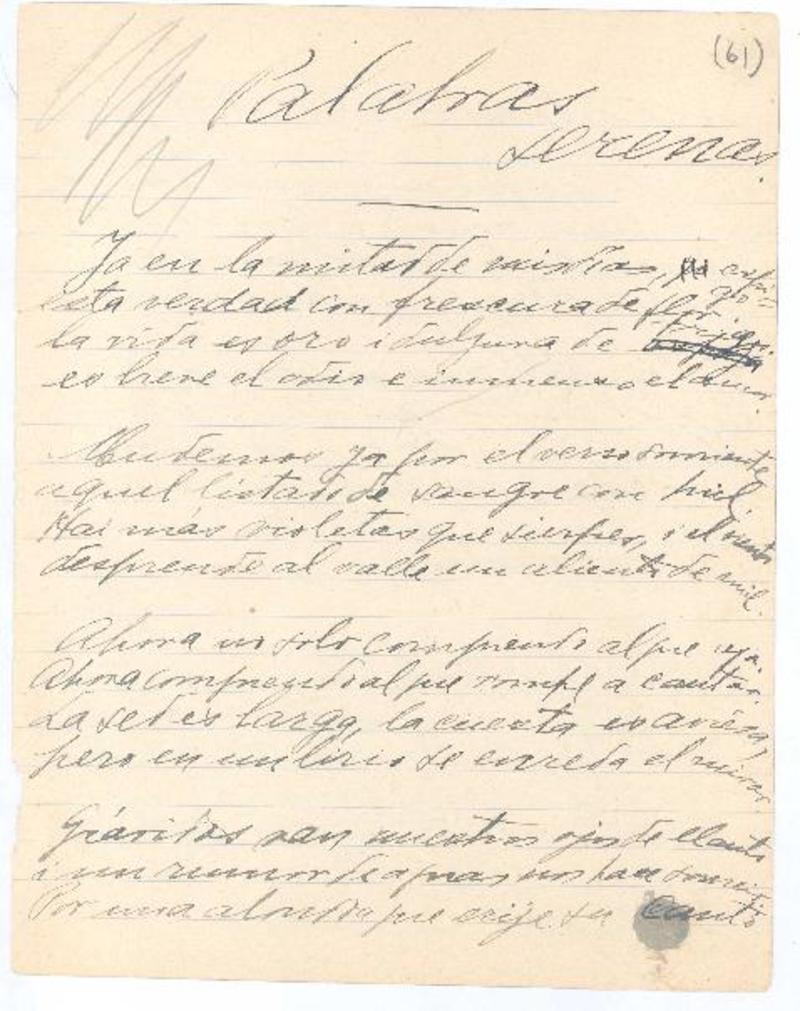 (61)
Palabras
serenas.
Ya en la mitad de mis días, espi-
go
esta verdad con frescura de flor:
la vida es oro i dulzura de trigo.
es breve el odio e inmenso el amor.
Mudemos ya por el verso sonriente
aquel listado de sangre con hiel
Hai más violetas que sierpes, i el viento
desprende al valle un aliento de miel.
Ahora no solo comprendo al que reza.
Ahora comprendo al que rompe a cantar.
La sed es larga, la cuesta es aviesa,
pero en un lirio se enreda el mirar
Grávidos van nuestros ojos de llanto
i un rumor de aguas nos hace sonreir
Por una alondra que erije su canto